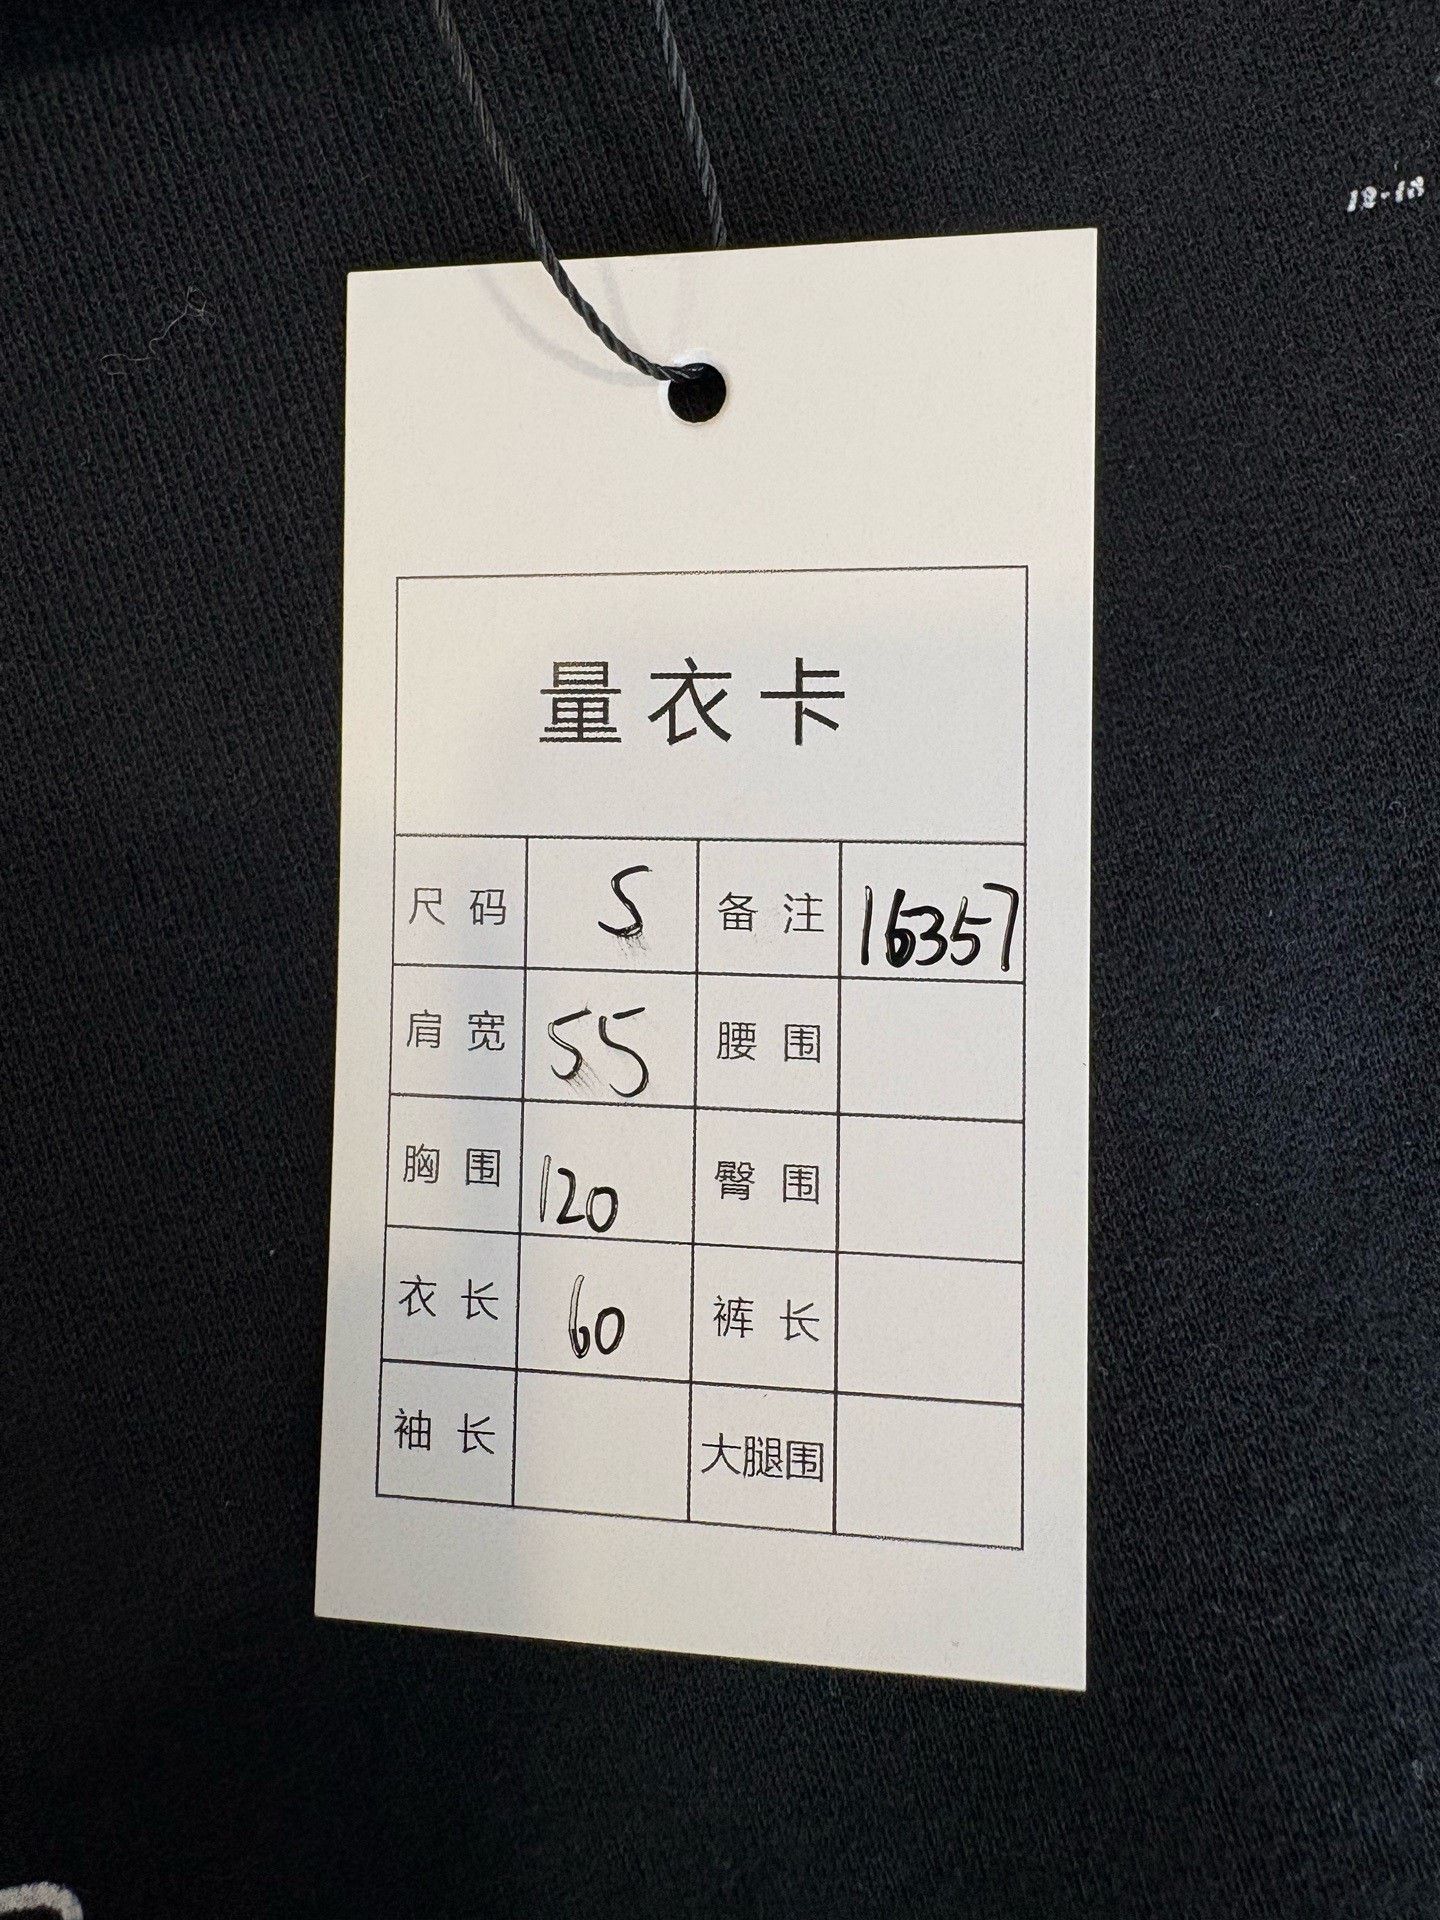 12-18
量衣卡
尺码 S 备注 16357
肩宽 55 腰围
胸围 120 臀围
衣长 60 裤长
袖长 大腿围